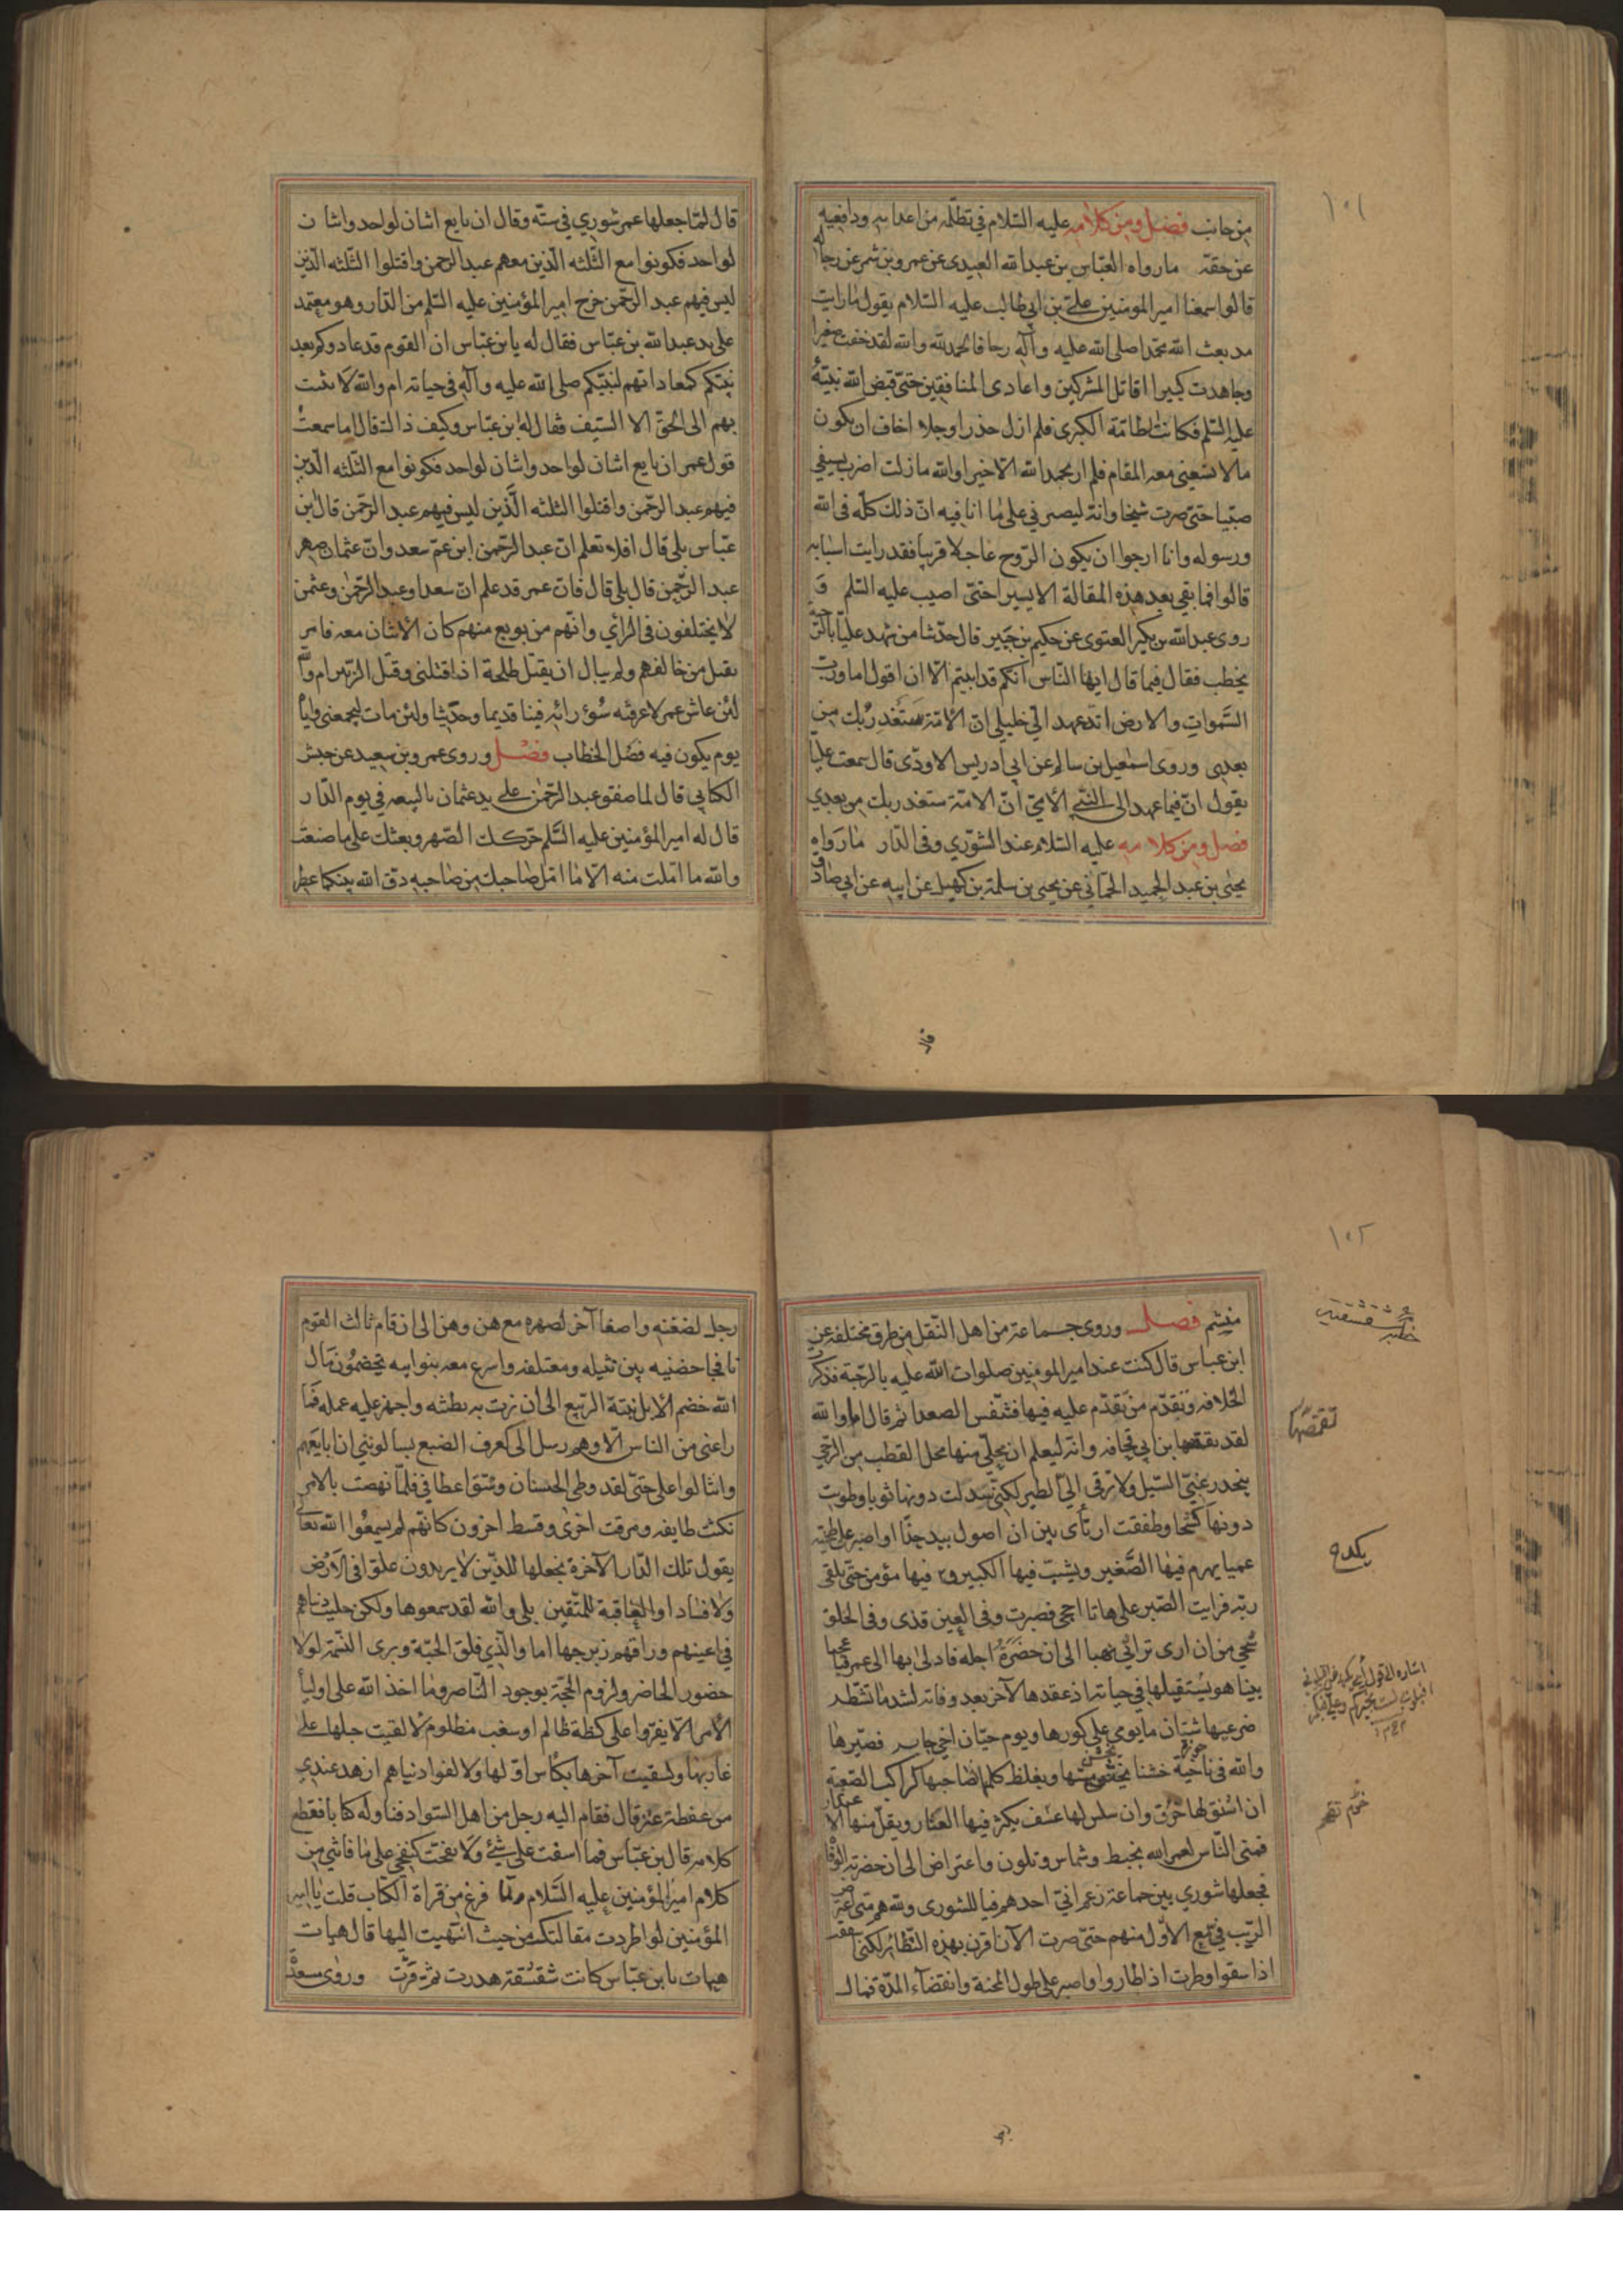 ١٠١
من جانب فصل ومن كلامه عليه السّلام في تظلّمه من اعدايه ودافعيه
عن حقّه ما رواه العبّاس بن عبدالله العبدى عن عمرو بن شمر عن رجاله
قالوا سمعنا امير المومنين عليّ بن ابي طالب عليه السّلام يقول ما رايت
مد بعث الله محمّدا صلى الله عليه وآله رجا فالحمدلله والله لقد خفت صغيرا
وجاهدت كبيرا اقاتل المشركين واعادى المنافقين حتّى قبض الله نبيّه
عليه السّلم فكانت الطامّة الكبرى فلم ازل حذرا وجلا اخاف ان يكون
مالا تسعنى معه المقام فلم ار بحمد الله الّا خيرا والله ما زلت اضرب بسيفي
صبيّا حتى صرت شيخا وانّه ليصبرني على ما انا فيه انّ ذلك كلّه فى الله
ورسوله وانا ارجوا ان يكون الرّوح عاجلا قريبا فقد رايت اسبابه
قالوا فما بقى بعد هذه المقالة الا يسيرا حتّى اصيب عليه السّلم و
روى عبدالله بن بكير الغنوى عن حكيم بن جبير قال حدّثنا من شهد عليّا بالرّحبة
يخطب فقال فيما قال ايها النّاس انّكم قد ابيتم الّا ان اقول اما وربّ
السّموات والارض لقد عهد الىّ خليلي انّ الامّة ستغدر بك من
بعدى وروى اسمعيل بن سالم عن ابي ادريس الاودى قال سمعت عليّا
يقول انّ فيما عهد الى النّبي الأمّى انّ الامّة ستغدر بك من بعدي
فصل ومن كلامه عليه السّلام عند الشّورى وفى الدّار ما رواه
يحيى بن عبد الحميد الحمّاني عن يحيى بن سلمة بن كهيل عن ابيه عن ابي صادق
قال
قال لمّا جعلها عمر شورى في ستّة وقال ان بايع اثنان لواحد واثنان
لواحد فكونوا مع الثّلثه الّذين معهم عبد الرحمن واقتلوا الثّلثه الّذين
ليس فيهم عبد الرّحمن خرج امير المؤمنين عليه السّلم من الدّار وهو معتمد
على يد عبدالله بن عبّاس فقال له يا بن عبّاس ان القوم قد عادوكم بعد
نبيّكم كمعاداتهم لنبيّكم صلى الله عليه وآله فى حياته ام والله لا ينيب
بهم الى الحقّ الا السّيف فقال له ابن عبّاس وكيف ذاك قال اما سمعت
قول عمر ان بايع اثنان لواحد واثنان لواحد فكونوا مع الثّلثه الّذين
فيهم عبد الرّحمن واقتلوا الثلثه الّذين ليس فيهم عبد الرّحمن قال بن
عبّاس بلى قال افلا تعلم انّ عبد الرّحمن ابن عمّ سعد وانّ عثمان صهر
عبد الرّحمن قال بلى قال فانّ عمر قد علم انّ سعدا وعبد الرّحمن وعثمن
لا يختلفون فى الرأي وانّهم من بويع منهم كان الأثنان معه فامر
بقتل من خالفهم ولم يبال ان يقتل طلحة اذا قتلني وقتل الزّبير ام والله
لئن عاش عمر لاعرفنّه سوء رائه فينا قديما وحديثا ولئن مات ليجمعني وايّاه
يوم يكون فيه فصل الخطاب فصل وروى عمرو بن سعيد عن حبش
الكناني قال لما صفق عبد الرّحمن على يد عثمان بالبيعه في يوم الدّار
قال له امير المؤمنين عليه السّلم حرّكك الصّهر وبعثك على ما صنعت
والله ما املت منه الّا ما امّل صاحبك من صاحبه دقّ الله بينكما عطر
١٠٢
منشم فصل وروى جماعة من اهل النّقل من طرق مختلفة عن
ابن عباس قال كنت عند امير المومنين صلوات الله عليه بالرّحبة فذكرت
الخلافه وتقدّم من تقدّم عليه فيها فتنفّس الصعدا ثم قال ام والله
لقد تقمّصها ابن ابي قحافه وانّه ليعلم ان محلّي منها محل القطب من الرّحى
ينحدر عنيّ السّيل ولا ترقى اليّ الطير لكنّى سدلت دونها ثوبا وطويت
دونها كشحا وطفقت ارتأى بين ان اصول بيد جذّا او اصبر على طخية
عميا يهرم فيها الصّغير ويشيب فيها الكبير و فيها مؤمن حتى يلقى
ربّه فرايت الصّبر على هاتا احجى فصبرت وفى العين قذى وفى الحلق
شجى من ان ارى تراثي نهبا الى ان حضره اجله فادلى بها الى عمر فيا عجبا
بينا هو يستقيلها في حياته اذ عقدها لآخر بعد وفاته لشد ما تشطّر
ضرعيها شتان ما يومي على كورها ويوم حيّان اخي جابر فصيّرها
والله فى ناحية خشنا يخشن مسّها ويغلظ كلمها صاحبها كراكب الصّعبة
ان اشنق لها خرق وان سلس لها عسف يكثر فيها العثار ويقلّ منها الا
فمنى النّاس لعمر الله بخبط وشماس وتلون واعتراض الى ان حضرته الوفاة
فجعلها شورى بين جماعة زعم انيّ احدهم فيا للشورى ولله هم متى اعترض
الرّيب فيّ مع الاوّل منهم حتّى صرت الآن اقرن بهذه النّظائر لكنّى
اذا سقوا وطرت اذا طاروا واصبر على طول المحنة وانقضاء المدّة فمال
شقشقيّة
تقمّصها
يكدح
رجل لضغنه واصغا آخر لصهره مع هن وهن الى ان قام ثالث القوم
نافجا حضنيه بين نثيله ومعتلفه واسرع معه بنوا ابيه يخضمون مال
الله خضم الأبل نبتة الرّبيع الى ان نزت به بطنته واجهز عليه عمله فما
راعنى من الناس الّا وهم رسل الى كعرف الضبع يسالونني ان ابايعهم
وانثالوا على حتّى لقد وطى الحسنان وشق عطافي فلمّا نهضت بالامر
نكث طايفه ومرقت اخرى وقسط آخرون كانّهم لم يسمعوا الله تعالى
يقول تلك الدّار الآخرة نجعلها للذّين لا يريدون علوّا فى الأرض
ولا فسادا والعاقبة للمتّقين بلى والله لقد سمعوها ولكن حليت دنياهم
في اعينهم وراقهم زبرجها اما والّذي فلق الحبّة وبرى النّسمة لولا
حضور الحاضر ولزوم الحجّة بوجود النّاصر وما اخذ الله على اوليا
الأمر الّا يقرّوا على كظّة ظالم او سغب مظلوم لألقيت حبلها على
غاربها ولسقيت آخرها بكأس اوّلها ولالفوا دنياهم ازهد عندي
من عفطة عنز قال فقام اليه رجل من اهل السّواد فناوله كتابا فقطع
كلامه قال بن عبّاس فما اسفت على شئ ولا تفجّعت كتفجّعي على ما فاتني من
كلام امير المؤمنين عليه السّلام ولمّا فرغ من قراة الكتاب قلت يا امير
المؤمنين لو اطردت مقالتك من حيث انتهيت اليها قال هيهات
هيهات يا بن عبّاس كانت شقشقة هدرت ثم قرّت وروى مسعدة